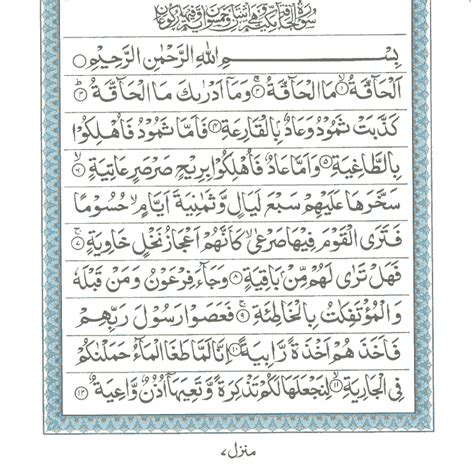 سُورَةُ الْحَاقَّةِ مَكِّيَّةٌ وَّهِيَ اثْنَتَانِ وَخَمْسُونَ اٰيَةً وَّفِيهَا رُكُوْعَانِ
بِسْمِ اللهِ الرَّحْمٰنِ الرَّحِيْمِ ○
اَلْحَآقَّةُ ۙ﴿۱﴾ مَا الْحَآقَّةُ ۚ﴿۲﴾ وَمَاۤ اَدْرٰىكَ مَا الْحَآقَّةُ ؕ﴿۳﴾
كَذَّبَتْ ثَمُوْدُ وَعَادٌۢ بِالْقَارِعَةِ ﴿۴﴾ فَاَمَّا ثَمُوْدُ فَاُهْلِكُوْا
بِالطَّاغِيَةِ ﴿۵﴾ وَاَمَّا عَادٌ فَاُهْلِكُوْا بِرِيْحٍ صَرْصَرٍ عَاتِيَةٍ ۙ﴿۶﴾
سَخَّرَهَا عَلَيْهِمْ سَبْعَ لَيَالٍ وَّثَمٰنِيَةَ اَيَّامٍ ۙ حُسُوْمًا
فَتَرَى الْقَوْمَ فِيْهَا صَرْعٰى ۙ كَاَنَّهُمْ اَعْجَازُ نَخْلٍ خَاوِيَةٍ ۚ﴿۷﴾
فَهَلْ تَرٰى لَهُمْ مِّنْۢ بَاقِيَةٍ ﴿۸﴾ وَجَآءَ فِرْعَوْنُ وَمَنْ قَبْلَهٗ
وَالْمُؤْتَفِكٰتُ بِالْخَاطِئَةِ ۚ﴿۹﴾ فَعَصَوْا رَسُوْلَ رَبِّهِمْ
فَاَخَذَهُمْ اَخْذَةً رَّابِيَةً ﴿۱۰﴾ اِنَّا لَمَّا طَغَا الْمَآءُ حَمَلْنٰكُمْ
فِى الْجَارِيَةِ ۙ﴿۱۱﴾ لِنَجْعَلَهَا لَكُمْ تَذْكِرَةً وَّتَعِيَهَاۤ اُذُنٌ وَّاعِيَةٌ ﴿۱۲﴾
منزل ۷